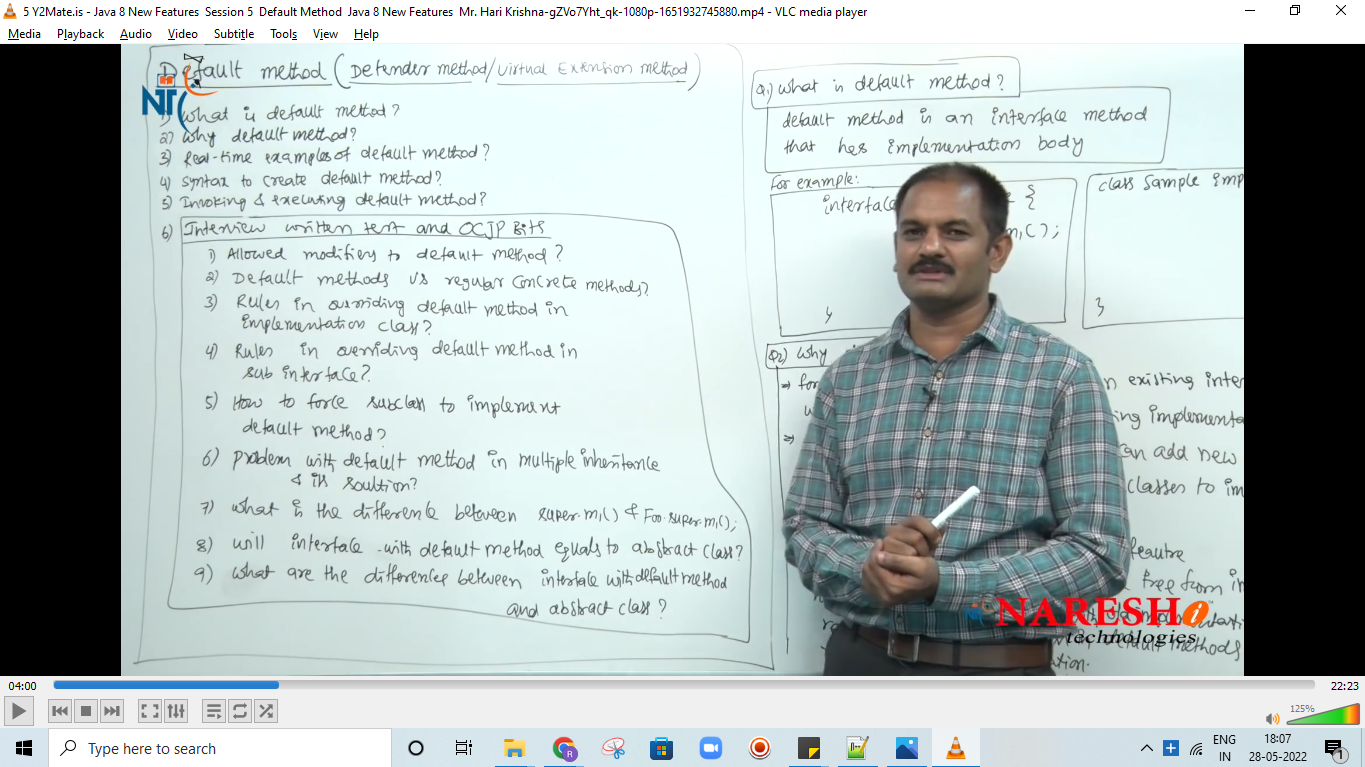 5 Y2Mate.is - Java 8 New Features Session 5 Default Method Java 8 New Features Mr. Hari Krishna-gZVo7Yht_qk-1080p-1651932745880.mp4 - VLC media player
Media Playback Audio Video Subtitle Tools View Help
Default method (Defender method/Virtual Extension method)
NTC
1) What is default method?
2) Why default method?
3) Real-time examples of default method?
4) Syntax to create default method?
5) Invoking & executing default method?
6) Interview written test and OCJP Bits
1) Allowed modifiers to default method?
2) Default methods vs regular concrete methods?
3) Rules in overriding default method in
implementation class?
4) Rules in overriding default method in
sub interface?
5) How to force subclass to implement
default method?
6) problem with default method in multiple inheritance
& its soultion?
7) What is the difference between super.m1() & Foo.super.m1();
8) will interface with default method equals to abstract class?
9) What are the differences between interface with default method
and abstract class?
Q1) What is default method?
default method is an interface method
that has implementation body
For example:
interface {
m1();
}
class Sample imp
}
Q2) Why
=> for n existing inter
ing implementa
=> an add new
classes to im
feautre
free from in
default methods
ation.
NARESH i
technologies
04:00 22:23
125%
Type here to search
ENG
IN
18:07
28-05-2022
1